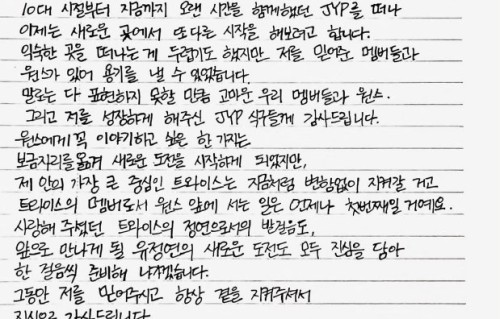 10대 시절부터 지금까지 오랜 시간을 함께했던 JYP를 떠나
이제는 새로운 곳에서 또 다른 시작을 해보려고 합니다.
익숙한 곳을 떠나는 게 두렵기도 했지만 저를 믿어준 멤버들과
원스가 있어 용기를 낼 수 있었습니다.
말로는 다 표현하지 못할 만큼 고마운 우리 멤버들과 원스.
그리고 저를 성장하게 해주신 JYP 식구들께 감사드립니다.
원스에게 꼭 이야기하고 싶은 한 가지는
보금자리를 옮겨 새로운 도전을 시작하게 되었지만,
제 안의 가장 큰 중심인 트와이스는 지금처럼 변함없이 지켜갈 거고
트와이스의 멤버로서 원스 앞에 서는 일은 언제나 첫번째일 거예요.
사랑해 주셨던 트와이스의 정연으로서의 발걸음도,
앞으로 만나게 될 유정연의 새로운 도전도 모두 진심을 담아
한 걸음씩 준비해 나가겠습니다.
그동안 저를 믿어주시고 항상 곁을 지켜주셔서
진심으로 감사드립니다.